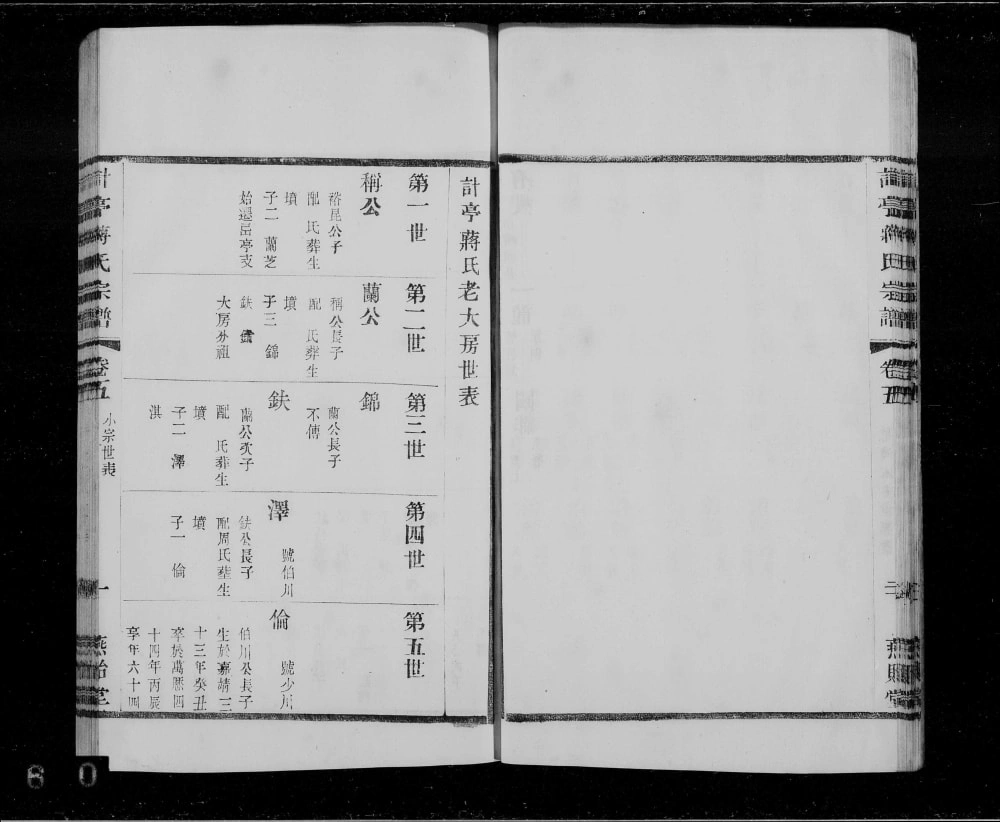 計亭蔣氏宗譜 卷五 二 燕貽堂
計亭蔣氏老大房世表
第一世
稱公
裕昆公子
配 氏葬生
墳
子二 蘭芝
始遷 亭支
第二世
蘭公
稱公長子
配 氏葬生
墳
子三 錦
鈇
大房分祖
第三世
錦
蘭公長子
不傳
鈇
蘭公次子
配 氏葬生
墳
子二 澤
淇
第四世
澤 號伯川
鈇公長子
配周氏葬生
墳
子一 倫
第五世
倫 號少川
伯川公長子
生於嘉靖三
十三年癸丑
卒於萬曆四
十四年丙辰
享年六十四
計亭蔣氏宗譜 卷五 小宗世表 一 燕貽堂
6 0